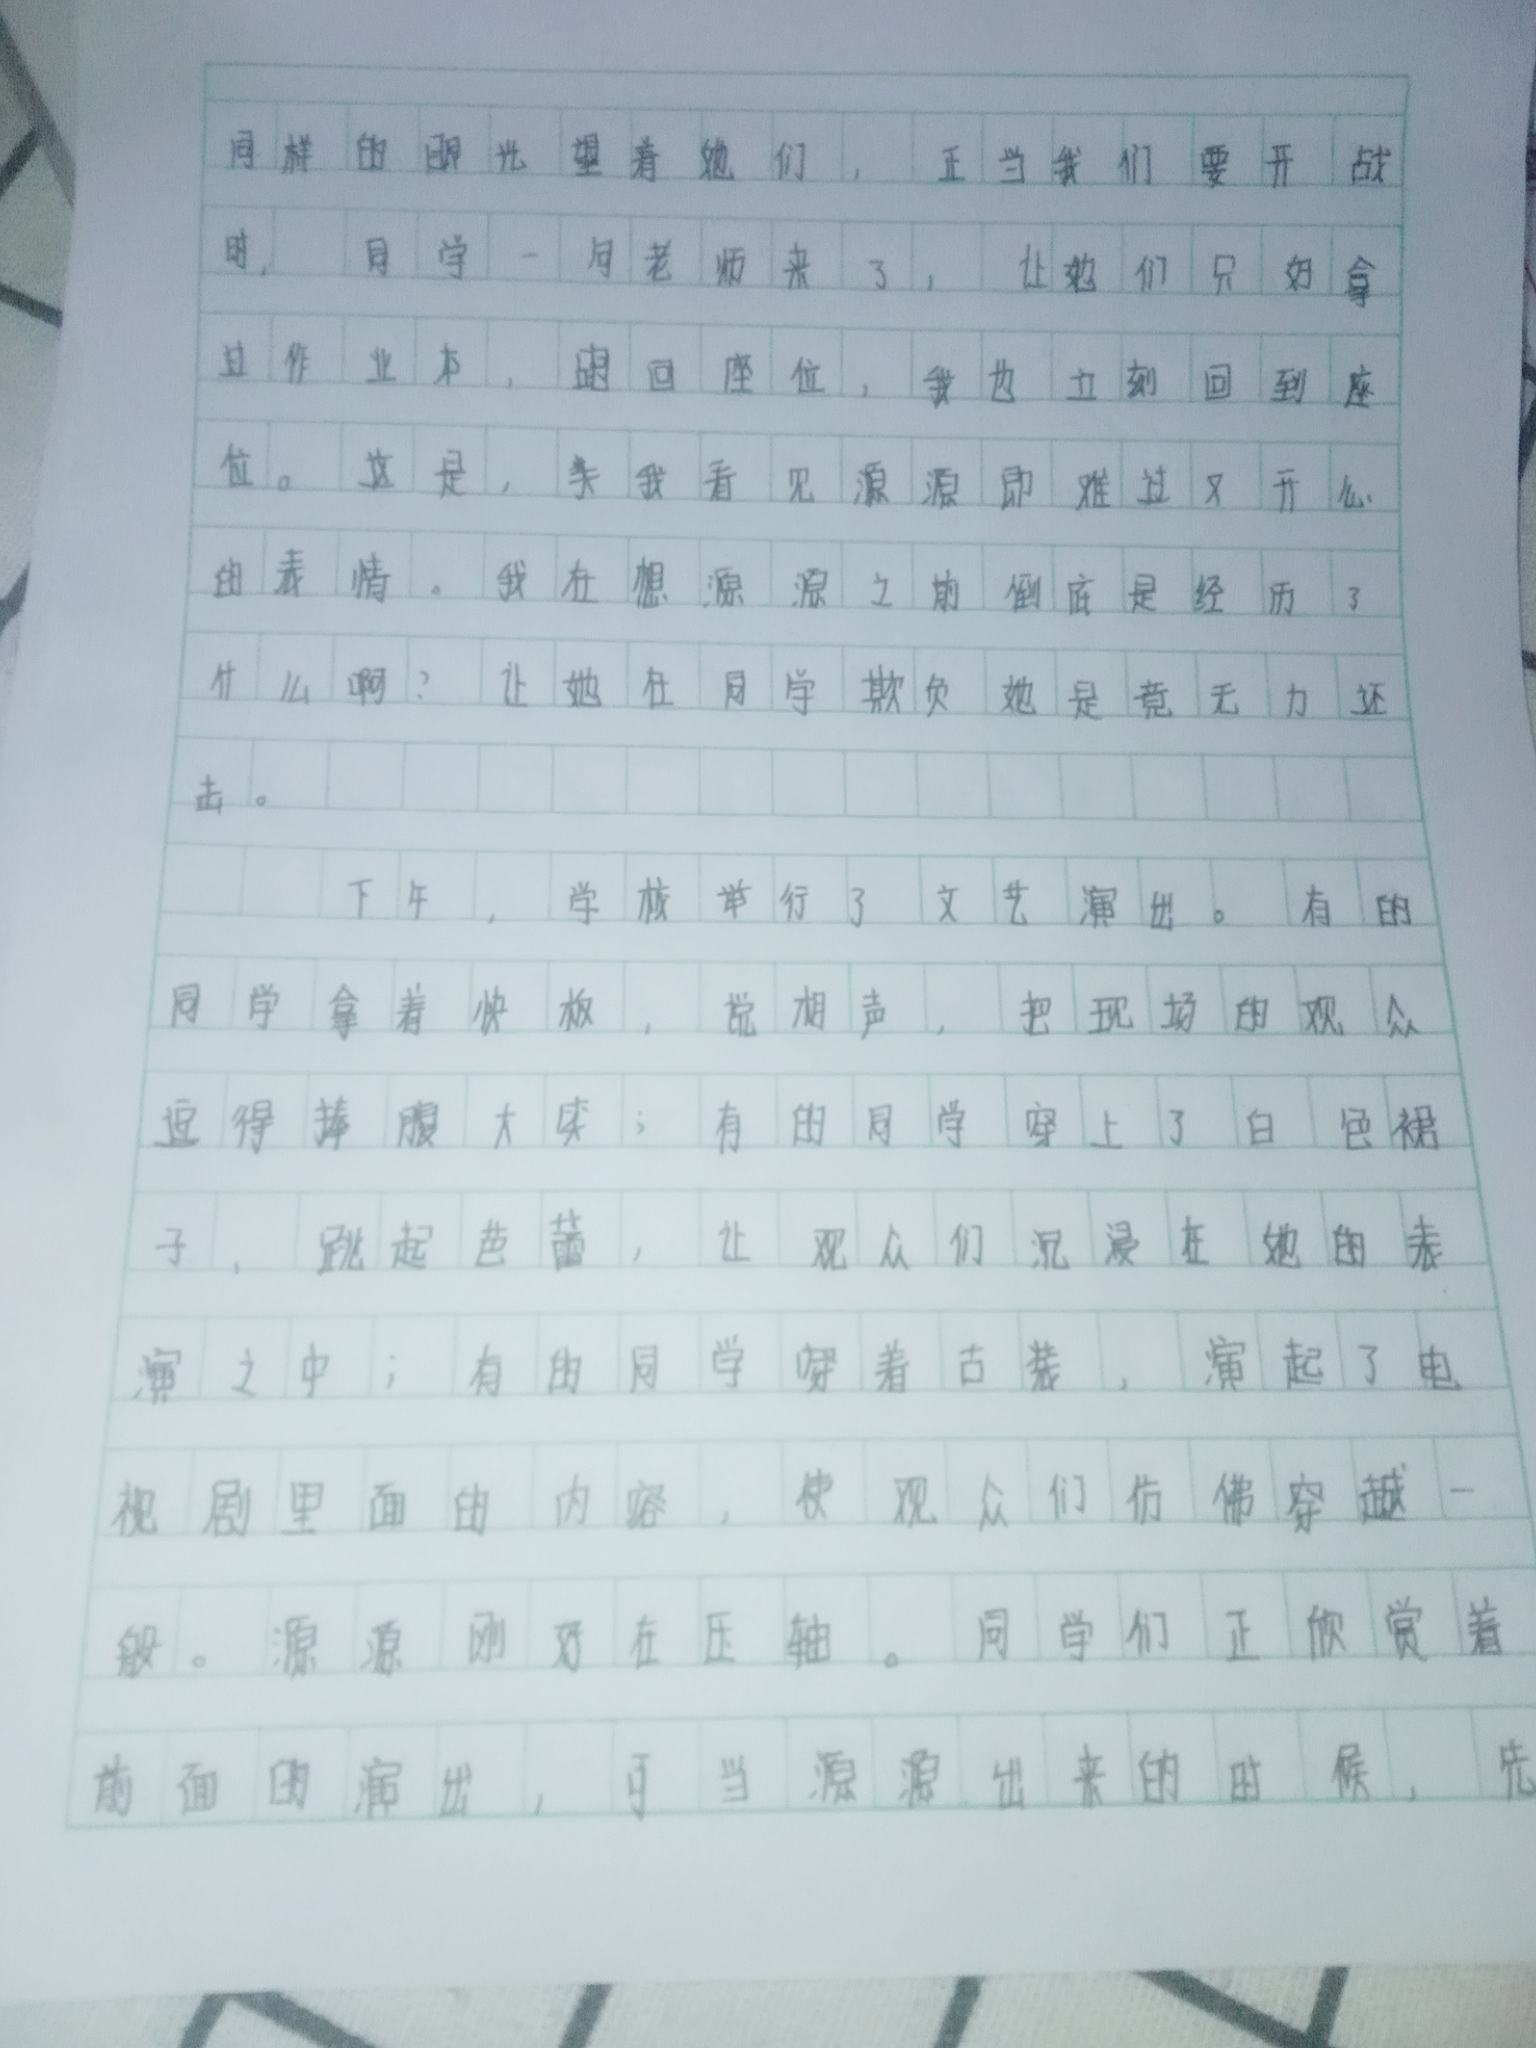 同样的眼光望着她们，正当我们要开战
时，同学一句老师来了，让她们只好拿
过作业本，跑回座位，我也立刻回到座
位。这是，我看见源源即难过又开心
的表情。我在想源源之前倒底是经历了
什么啊？让她在同学欺负她是竟无力还
击。
下午，学校举行了文艺演出。有的
同学拿着快板，说相声，把现场的观众
逗得捧腹大笑；有的同学穿上了白色裙
子，跳起芭蕾，让观众们沉浸在她的表
演之中；有的同学穿着古装，演起了电
视剧里面的内容，使观众们仿佛穿越一
般。源源刚好在压轴。同学们正欣赏着
前面的演出，可当源源出来的时候，先